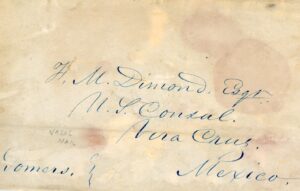 F. M. Dimond. Esqr.
U. S. Consul.
Vera Cruz.
Mexico.
Somers.